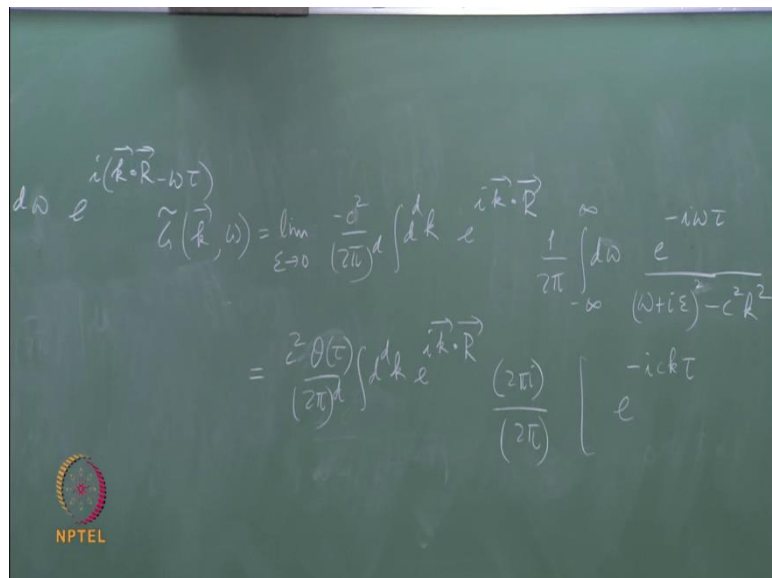 dω e^{i(\vec{k}·\vec{R} - ωτ)} \tilde{G}(\vec{k}, ω) = lim_{ε→0} \frac{-c^2}{(2π)^d} ∫ d^d k e^{i\vec{k}·\vec{R}} \frac{1}{2π} ∫_{-∞}^{∞} dω \frac{e^{-iωτ}}{(ω+iε)^2 - c^2k^2}
= \frac{c^2 θ(τ)}{(2π)^d} ∫ d^d k e^{i\vec{k}·\vec{R}} \frac{(2πi)}{(2π)} [ e^{-ickτ}
NPTEL